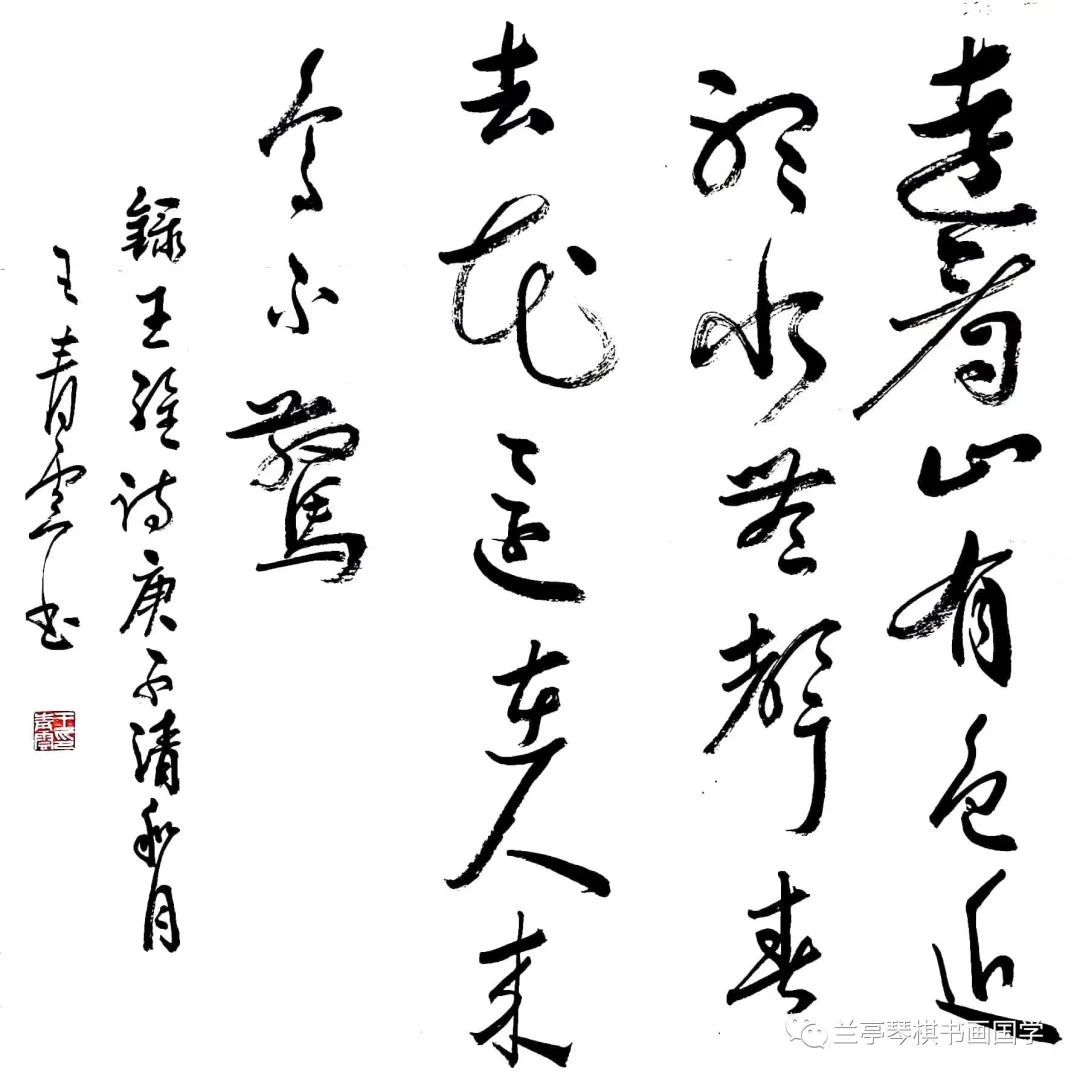 遠看山有色近
聽水無聲春
去花還在人来
鸟不驚
録王維诗庚子清和月
王青雲书
王青雲印
兰亭琴棋书画国学